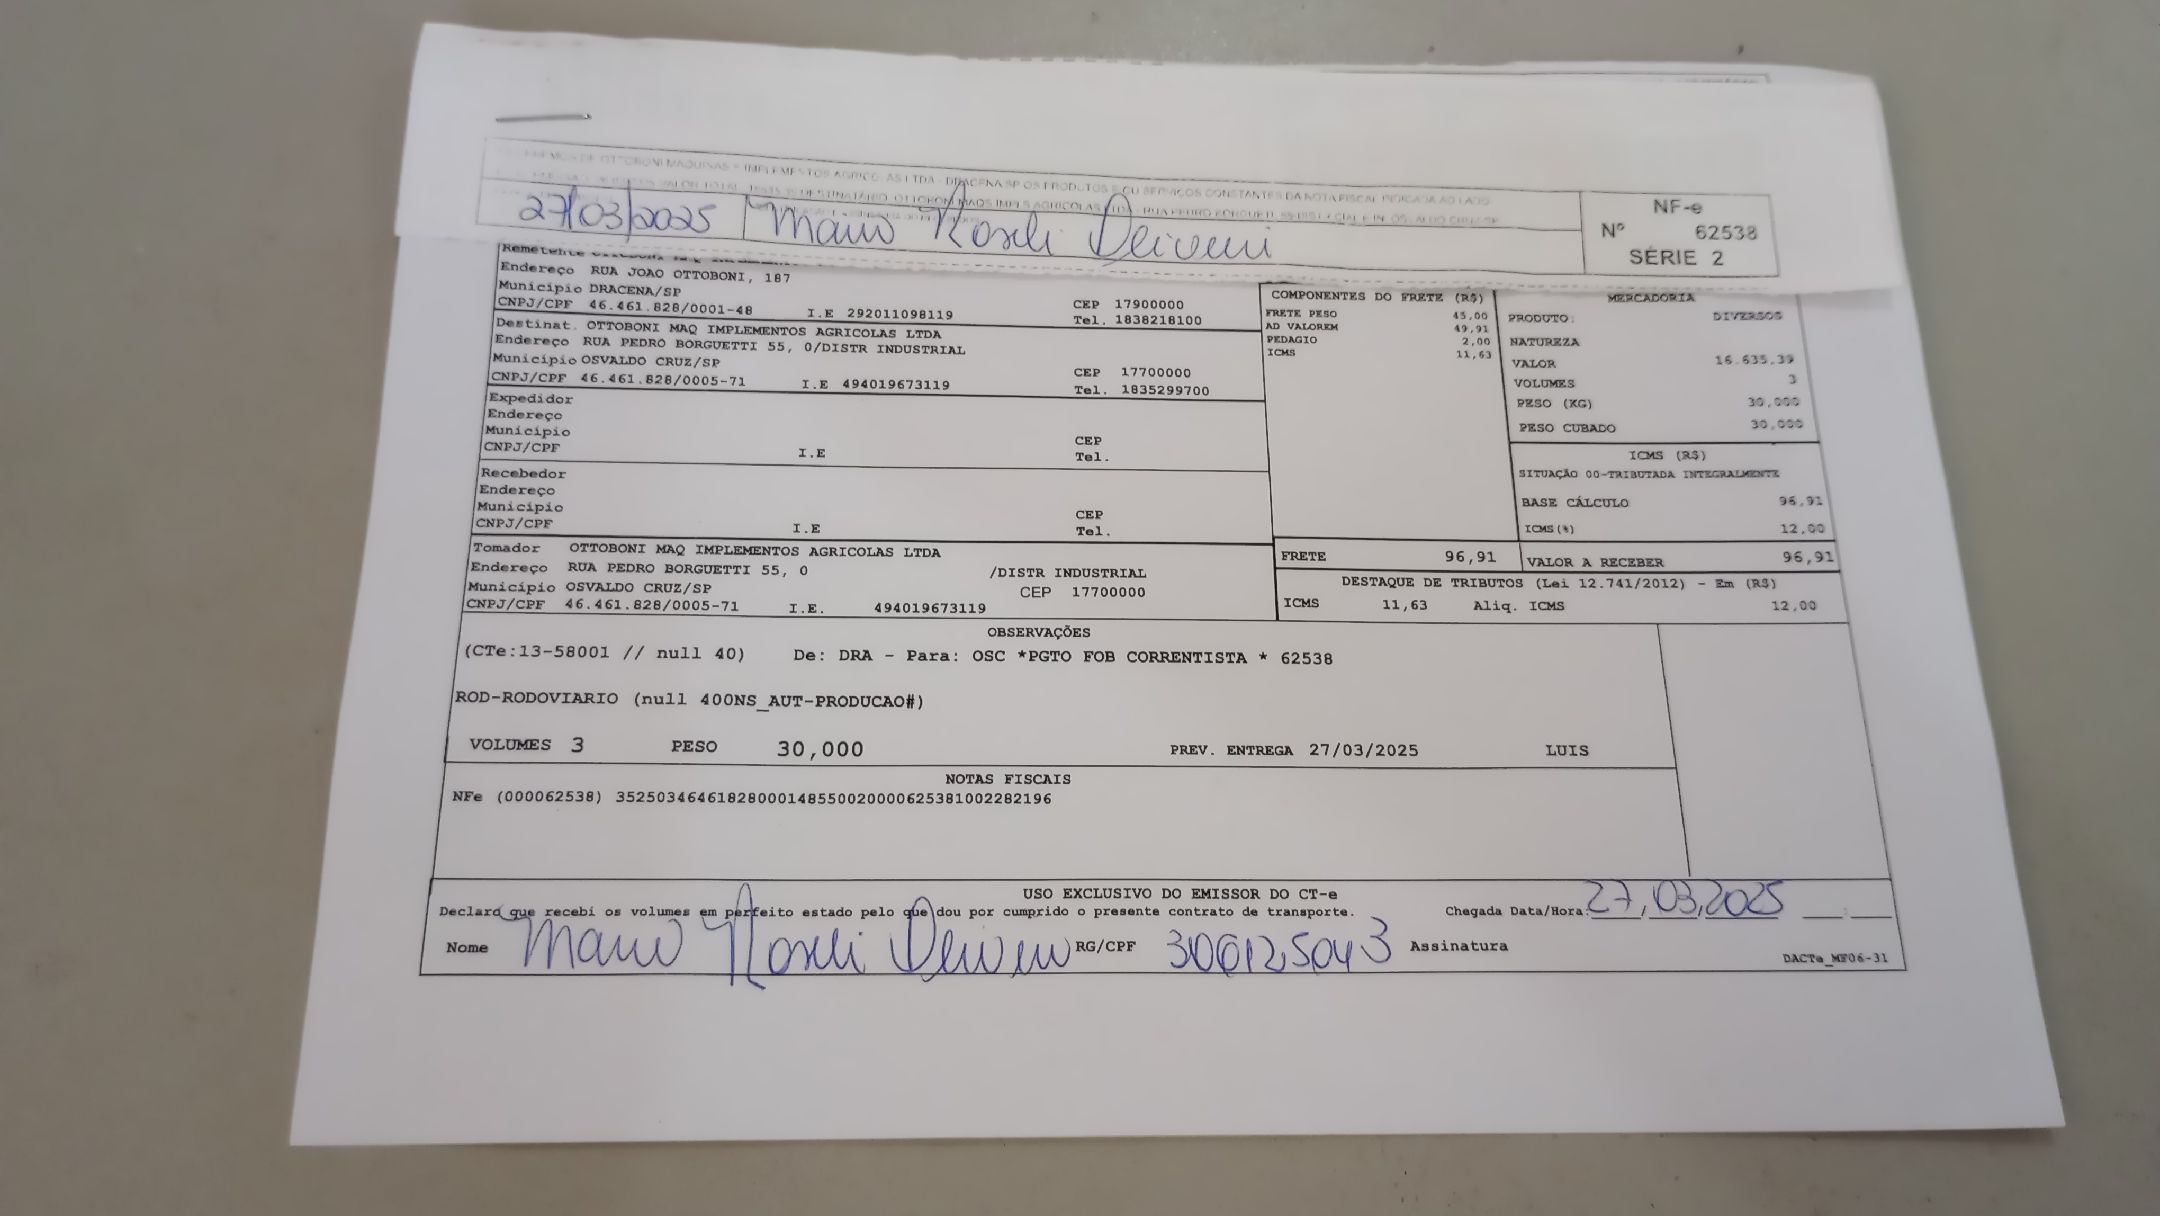 OTTOBONI MAQUINAS E IMPLEMENTOS AGRICOLAS LTDA - DRACENA SP OS PRODUTOS E OU SERVIÇOS CONSTANTES DA NOTA FISCAL INDICADA AO LADO
27/03/2025
NF-e
Nº 62538
SÉRIE 2
Remetente
Endereço RUA JOAO OTTOBONI, 187
Município DRACENA/SP
CNPJ/CPF 46.461.828/0001-48 I.E 292011098119
CEP 17900000
Tel. 1838218100
Destinat. OTTOBONI MAQ IMPLEMENTOS AGRICOLAS LTDA
Endereço RUA PEDRO BORGUETTI 55, 0/DISTR INDUSTRIAL
Município OSVALDO CRUZ/SP
CNPJ/CPF 46.461.828/0005-71 I.E 494019673119
CEP 17700000
Tel. 1835299700
Expedidor
Endereço
Município
CNPJ/CPF I.E
CEP
Tel.
Recebedor
Endereço
Município
CNPJ/CPF I.E
CEP
Tel.
Tomador OTTOBONI MAQ IMPLEMENTOS AGRICOLAS LTDA
Endereço RUA PEDRO BORGUETTI 55, 0 /DISTR INDUSTRIAL
Município OSVALDO CRUZ/SP CEP 17700000
CNPJ/CPF 46.461.828/0005-71 I.E. 494019673119
COMPONENTES DO FRETE (R$)
FRETE PESO 45,00
AD VALOREM 49,91
PEDAGIO 2,00
ICMS 11,63
FRETE 96,91
MERCADORIA
PRODUTO: DIVERSOS
NATUREZA
VALOR 16.635,39
VOLUMES 3
PESO (KG) 30,000
PESO CUBADO 30,000
ICMS (R$)
SITUAÇÃO 00-TRIBUTADA INTEGRALMENTE
BASE CÁLCULO 96,91
ICMS(%) 12,00
VALOR A RECEBER 96,91
DESTAQUE DE TRIBUTOS (Lei 12.741/2012) - Em (R$)
ICMS 11,63 Aliq. ICMS 12,00
OBSERVAÇÕES
(CTe:13-58001 // null 40) De: DRA - Para: OSC *PGTO FOB CORRENTISTA * 62538
ROD-RODOVIARIO (null 400NS_AUT-PRODUCAO#)
VOLUMES 3 PESO 30,000 PREV. ENTREGA 27/03/2025 LUIS
NOTAS FISCAIS
NFe (000062538) 35250346461828000148550020000625381002282196
USO EXCLUSIVO DO EMISSOR DO CT-e
Declaro que recebi os volumes em perfeito estado pelo que dou por cumprido o presente contrato de transporte. Chegada Data/Hora: 27,03,2025
Nome RG/CPF 306125043 Assinatura
DACTe_MF06-31